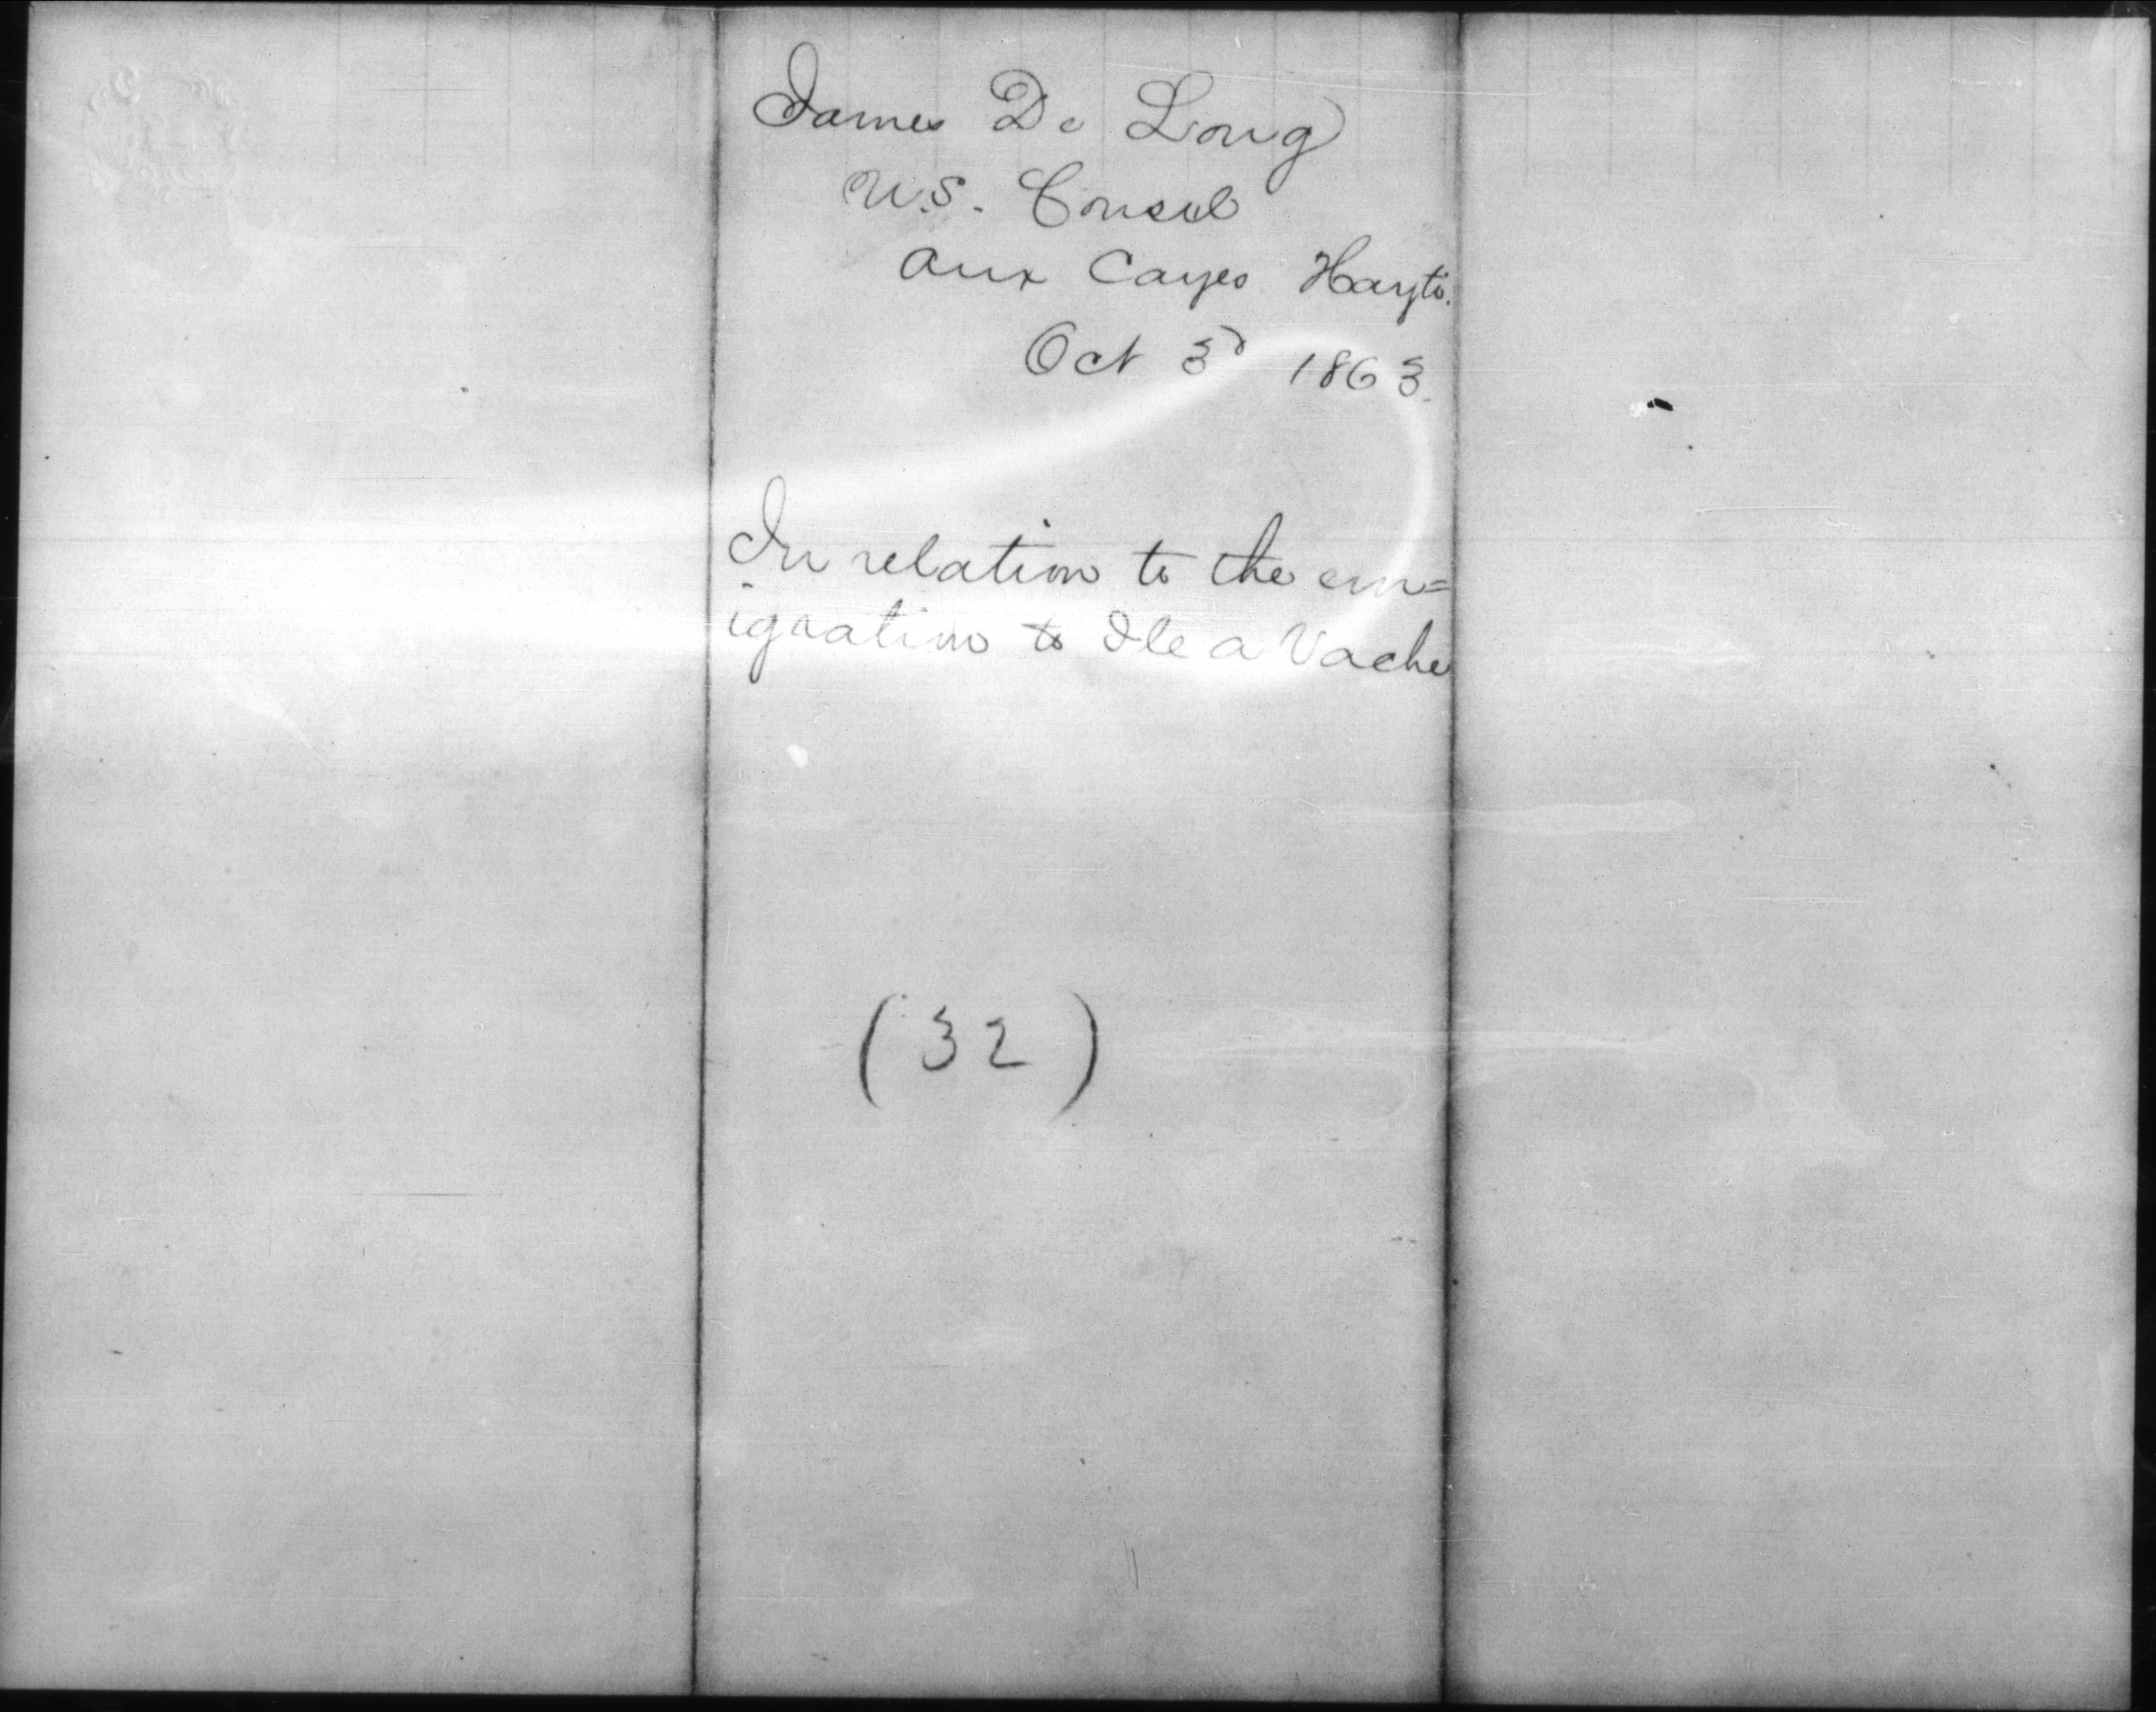 James De Long
U.S. Consul
Aux Cayes Hayti.
Oct 3d 1863.
In relation to the em=
igration to Ile a Vache
(32)